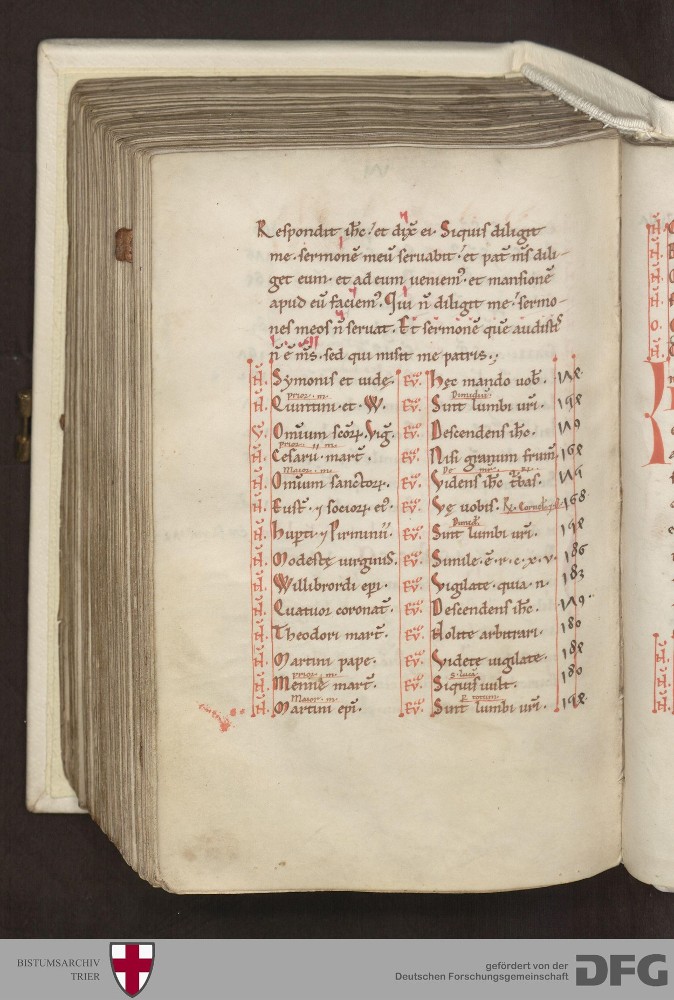 Respondit ihc. et dix̄ ei. Siquis diligit
me. sermonē meū seruabit. et pat̄ m̄s dili-
get eum. et ad eum ueniem᷒. et mansionē
apud eū faciem᷒. Qui n̄ diligit me. sermo-
nes meos n̄ seruat. Et sermonē quē audistis
n̄ ē m̄s. sed qui misit me patris.
Symonis et iudę. Hęc mando uob. 
prior. m. Dimidiū
Quintini. et W. Sint lumbi ur̄i. 198
Omīum scōꝝ. Viḡ. Descendens ihc.
prior. m.
Cesarii. mart̄. Nisi granum frum̄. 168
Maior. m.
Omīum sanctoꝝ. Videns ihc t̄bas.
Eust̄. ⁊ socioꝝ ei᷒. Vę uobis. 168
Dimid.
Hupti ⁊ Pirminii. Sint lumbi ur̄i. 198
Modestę uirginis. Simile. ē. r. c. x. v. 186
Willibrordi ep̄i. Vigilate. quia. n. 183
Quatuor coronat̄. Descendens ihc.
Theodori mart̄. Nolite arbitrari. 180
Martini pape. Videte uigilate. 188
prior. m.
Mennę mart̄. Siquis uult. 180
Maior. m.
Martini ep̄i. Sint lumbi ur̄i. 198
BISTUMSARCHIV
TRIER
gefördert von der
Deutschen Forschungsgemeinschaft
DFG